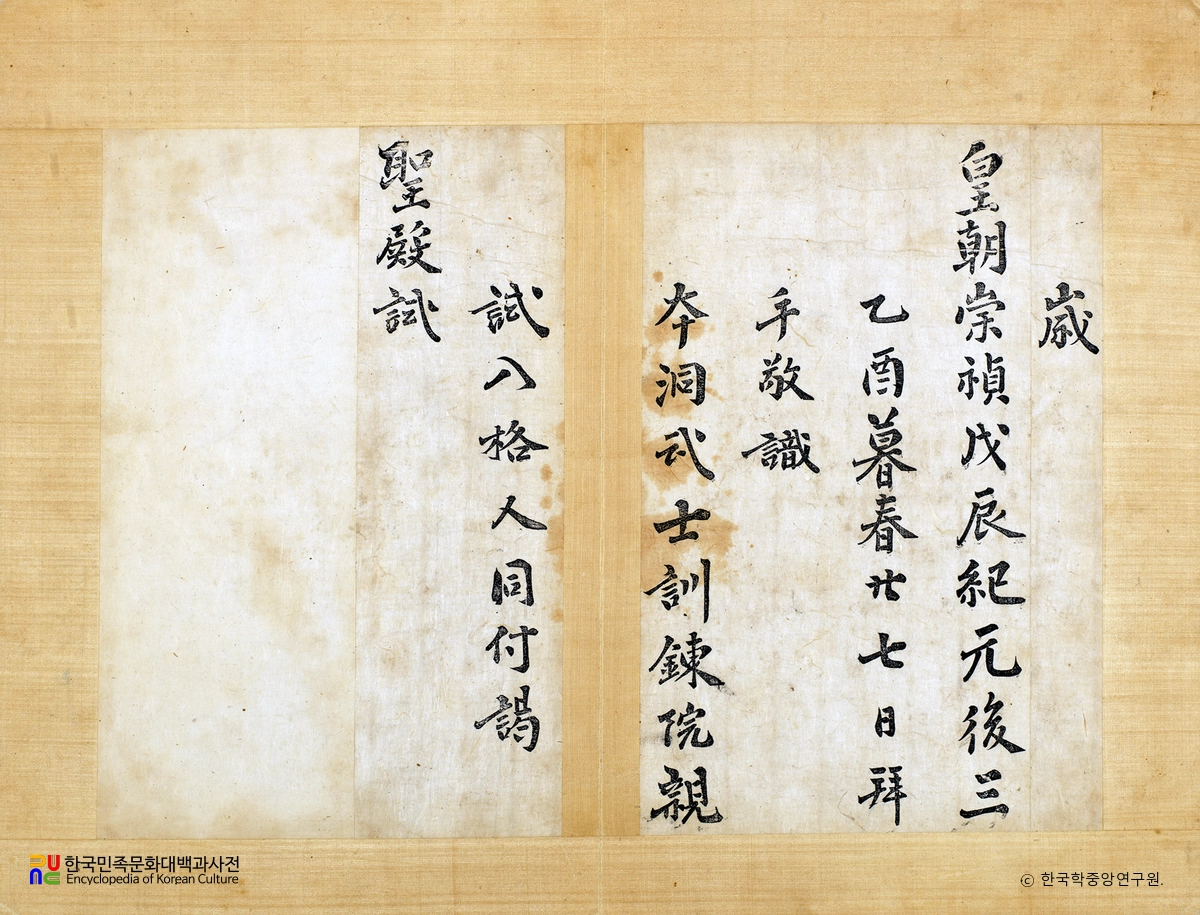 歲
皇朝崇禎戊辰紀元後三
乙酉暮春廿七日拜
手敬識
本洞武士訓鍊院親
試入格人同付謁
聖殿試
한국민족문화대백과사전
Encyclopedia of Korean Culture
ⓒ 한국학중앙연구원.